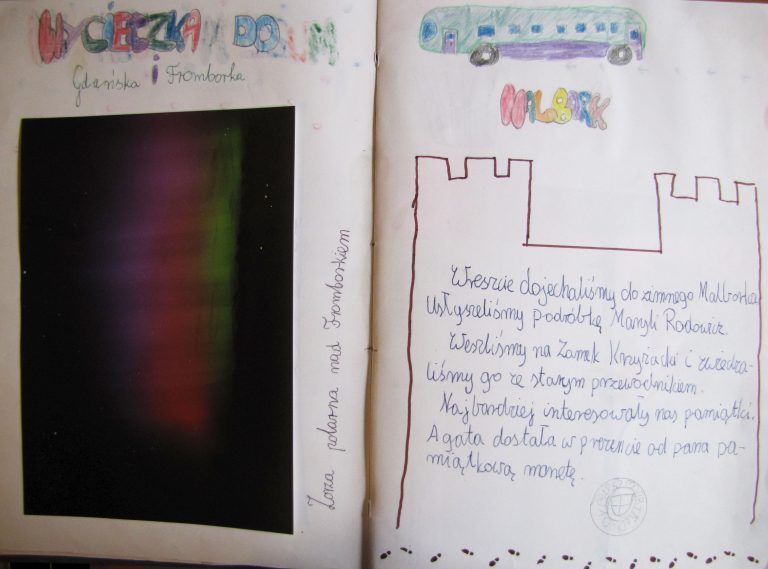 WYCIECZKA DO
Gdańska i Fromborka
Zorza polarna nad Fromborkiem
MALBORK
Wreszcie dojechaliśmy do zimnego Malborka
Usłyszeliśmy podróbkę Maryli Rodowicz.
Weszliśmy na Zamek Krzyżacki i zwiedza-
liśmy go ze starym przewodnikiem.
Najbardziej interesowały nas pamiątki.
Agata dostała w prezencie od pana pa-
miątkową monetę.